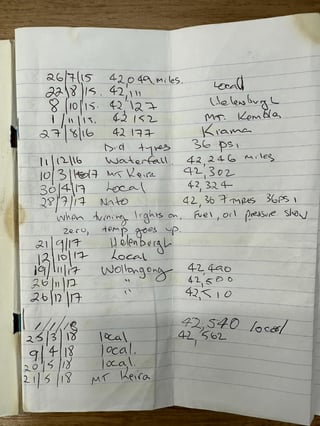 26/7/15 42,049 miles.
22/8/15. 42,111 Local
8/10/15. 42,127 Helensburgh
1/11/15. 42152 MT. Kembla
27/8/16 42177 Kiama
Did tyres 36 psi
11/12/16 Waterfall. 42,246 miles
10/3/17 MT Keira 42,302
30/4/17 Local 42,324
28/7/17 42,367 36psi
when turning lights on. Fuel, oil pressure show
zero, temp goes up.
21/9/17 Helenbergh
12/10/17 Local
19/11/17 Wollongong 42,490
26/11/17 " 42,500
26/12/17 " 42,510
42,540 local
25/3/18 local 42,562
9/4/18 local.
20/5/18 local
21/5/18 MT Keira